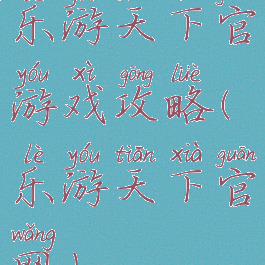 乐游天下官
yóu xì gōng lüè
游戏攻略(
lè yóu tiān xià guān
乐游天下官
wǎng